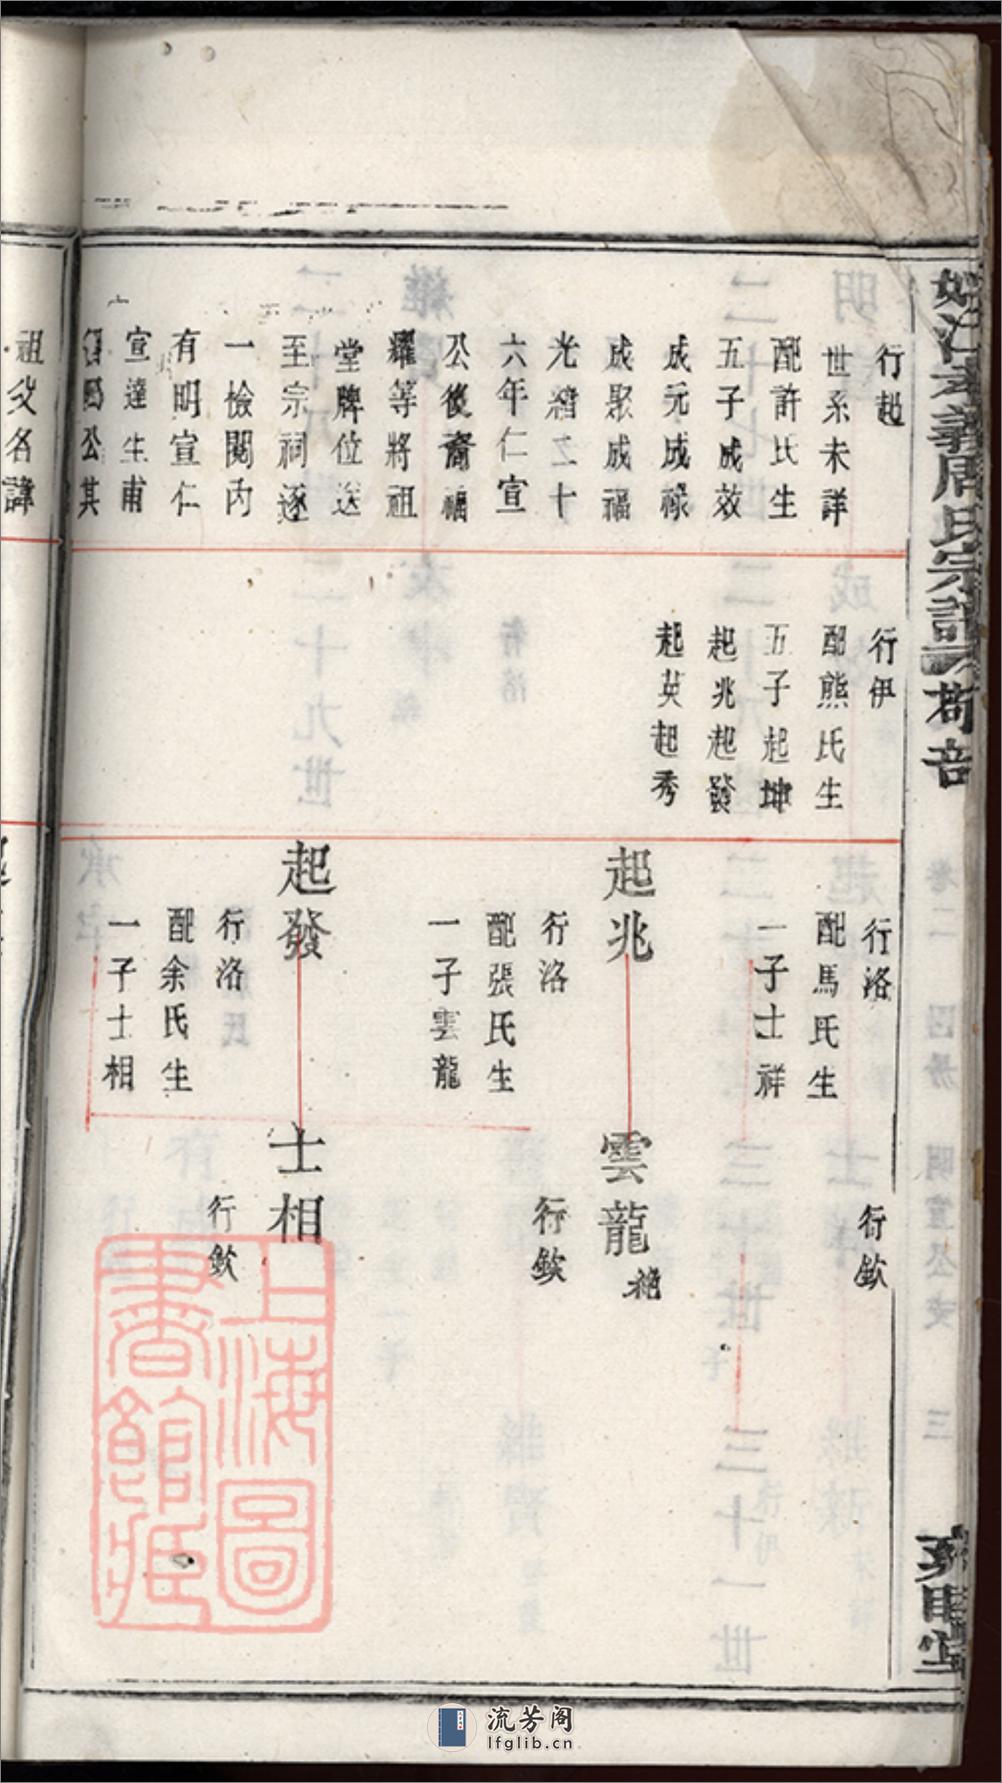 行起
世系未詳
配許氏生
五子成效
成元成祿
成聚成福
光緒二十
六年仁宣
公後裔福
耀等將祖
堂牌位送
至宗祠逐
一檢閱內
有明宣仁
宣達生甫
公其
祖父名諱
行伊
配熊氏生
五子起坤
起兆起發
起英起秀
行洛
配馬氏生
一子士祥
起兆
行洛
配張氏生
一子雲龍
起發
行洛
配余氏生
一子士相
行欽
雲龍
行欽
士相
行欽
上海圖書館藏
流芳阁
lfglib.cn